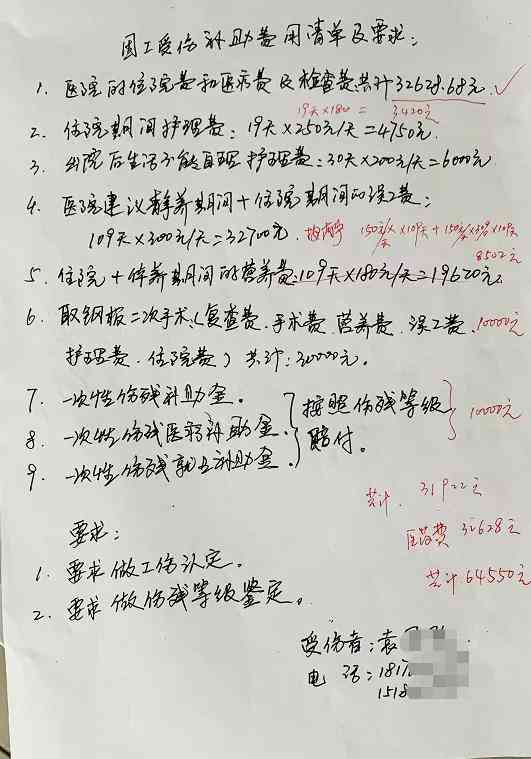 因工受伤补助费用清单及要求:
1. 医院的住院费和医疗费及检查费共计32628.68元 ✓
19天×180 = 3420元
2. 住院期间护理费:19天×250元/天=4750元.
3. 出院后生活不能自理护理费:30天×200元/天=6000元
4. 医院建议静养期间+住院期间的误工费:
109天×300元/天=32700元.
150元/天×109天+150元/天×
8502元
5. 住院+休养期间的营养费:109天×180元/天=19620元
6. 取钢板二次手术(复查费.手术费.营养费.误工费. 10000元
护理费.住院费)共计:30000元.
7. 一次性伤残补助金.
8. 一次性伤残医疗补助金. 按照伤残等级 10000元
9. 一次性伤残就业补助金. 赔付.
共计. 31922元
医药费 32628元
共计64550元
要求:
1. 要求做工伤认定.
2. 要求做伤残等级鉴定.
受伤者:袁
电话:1817
1518